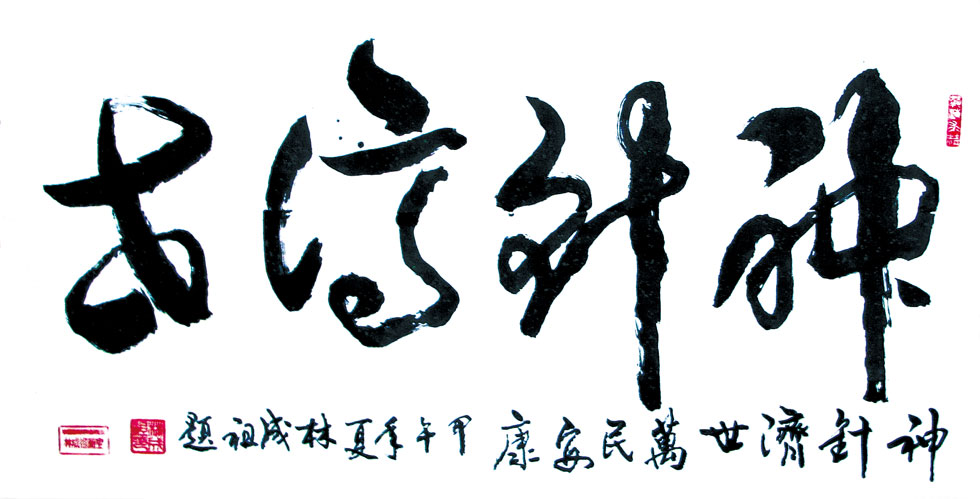 神針濟世
神針濟世萬民安康甲午年夏林成祖題